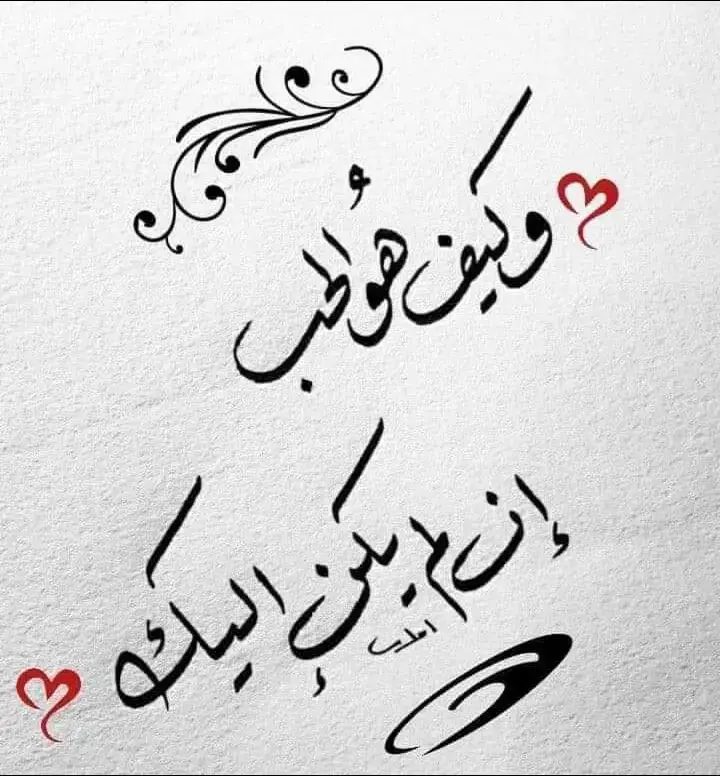 وكيف هو الحب
إن لم يكن إليك